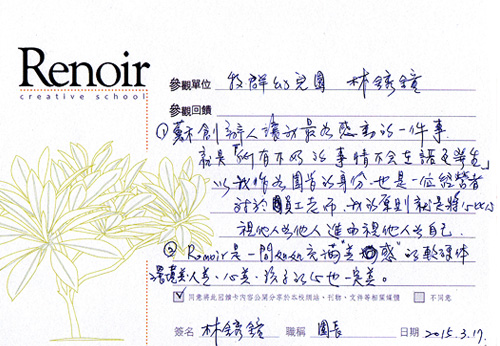 Renoir
creative school
參觀單位 牧群幼兒園 林
參觀回饋
①創辦人讓我最為感動的一件事
就是「所有不好的事情不會在語言學生」
以我作為園長的身份,也是一位經營者
對於員工老師,我的原則就是將心比心
視他人為他人進而視他人為自己.
② Renoir是一間 充滿"美感"的軟硬體
環境美、人美、心美,孩子的心也一定美。
同意將此回饋卡內容公開分享於本校網站、刊物、文件等相關媒體 不同意
簽名 林 職稱 園長 日期 2015.3.17.